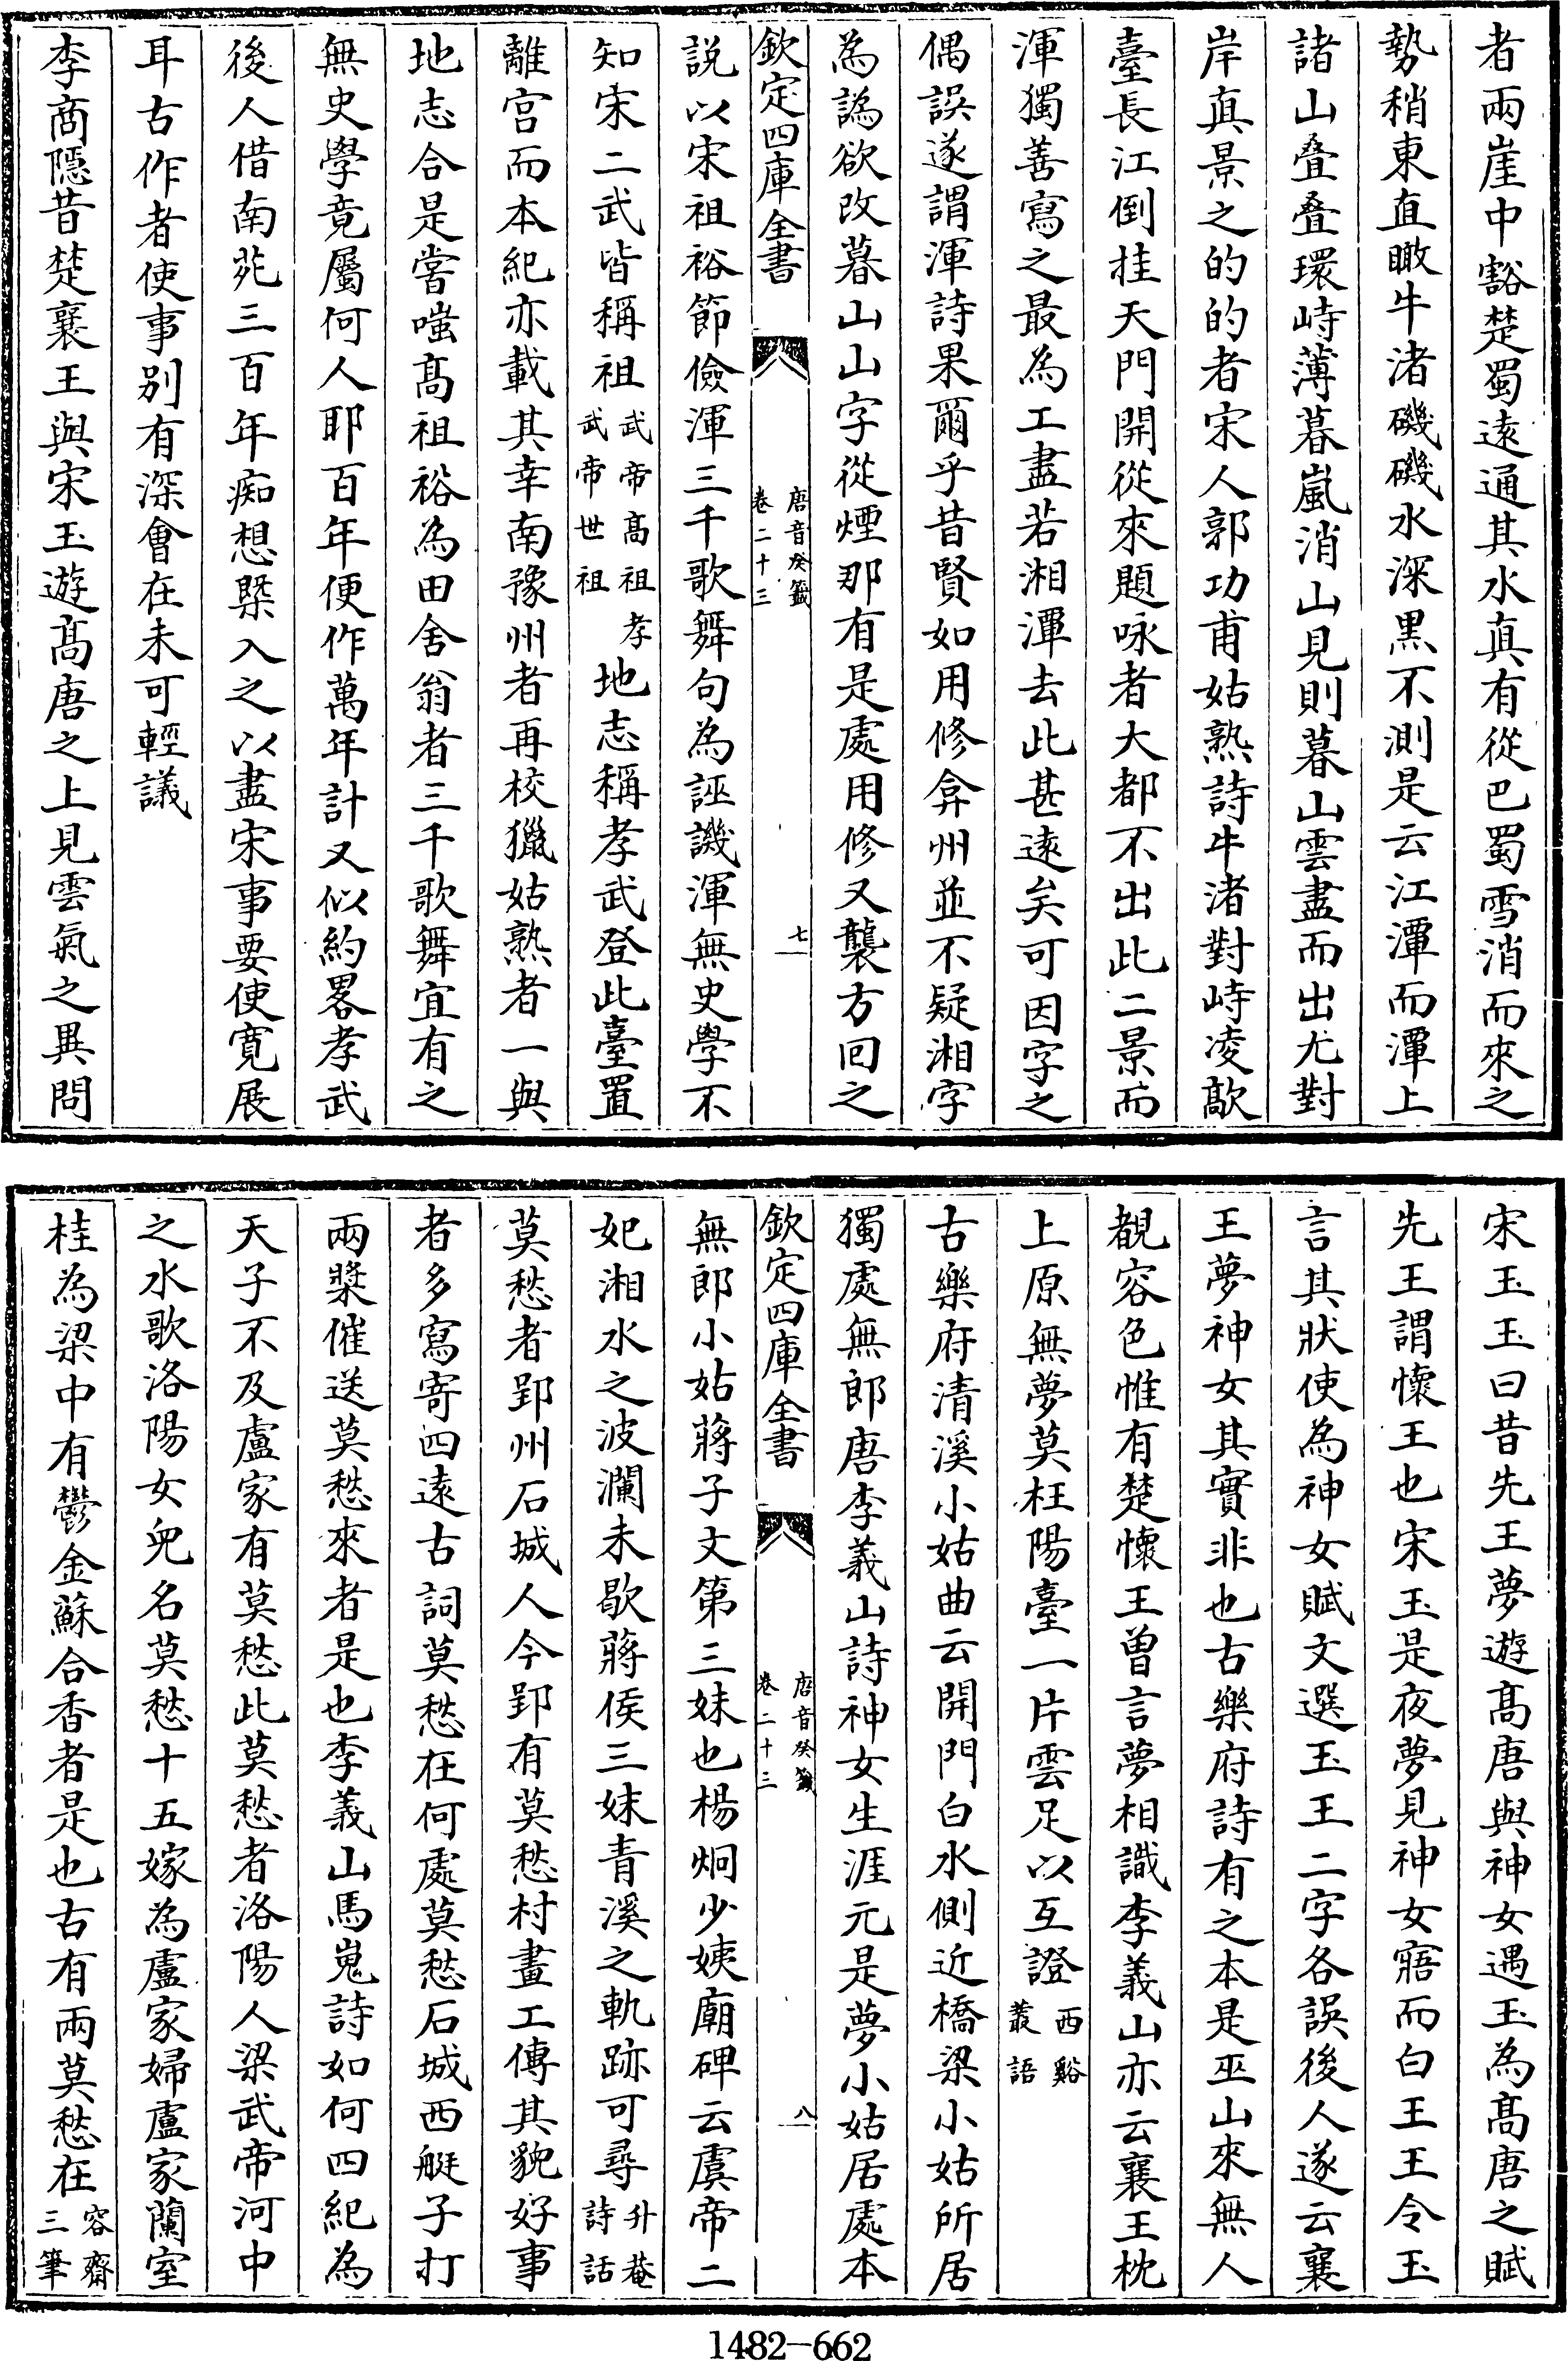 者兩崖中豁楚蜀遠通其水真有從巴蜀雪消而來之
勢稍東直瞰牛渚磯磯水深黒不測是云江潭而潭上
諸山叠叠環峙薄暮嵐消山見則暮山雲盡而出尤對
岸真景之的的者宋人郭功甫姑熟詩牛渚對峙凌歊
臺長江倒挂天門開從來題咏者大都不出此二景而
渾獨善寫之最為工盡若湘潭去此甚逺矣可因字之
偶誤遂謂渾詩果爾乎昔賢如用修弇州並不疑湘字
為譌欲改暮山山字從煙那有是處用修又襲方回之
欽定四庫全書
唐音癸籖
卷二十三
七
説以宋祖裕節儉渾三千歌舞句為誣譏渾無史學不
知宋二武皆稱祖武帝髙祖孝武帝世祖地志稱孝武登此臺置
離宫而本紀亦載其幸南豫州者再校獵姑熟者一與
地志合是嘗嗤髙祖裕為田舍翁者三千歌舞宜有之
無史學竟屬何人耶百年便作萬年計又似約畧孝武
後人借南苑三百年痴想槩入之以盡宋事要使寛展
耳古作者使事别有深會在未可輕議
李商隱昔楚襄王與宋玉遊髙唐之上見雲氣之異問
宋玉玉曰昔先王夢遊髙唐與神女遇玉為髙唐之賦
先王謂懷王也宋玉是夜夢見神女寤而白王王令玉
言其狀使為神女賦文選玉王二字各誤後人遂云襄
王夢神女其實非也古樂府詩有之本是巫山來無人
覩容色惟有楚懷王曽言夢相識李義山亦云襄王枕
上原無夢莫枉陽臺一片雲足以互證西谿叢語
古樂府清溪小姑曲云開門白水側近橋梁小姑所居
獨處無郎唐李義山詩神女生涯元是夢小姑居處本
欽定四庫全書
唐音癸籖
卷二十三
八
無郎小姑蔣子文第三妹也楊炯少姨廟碑云虞帝二
妃湘水之波瀾未歇蔣侯三妹青溪之軌跡可尋升菴詩話
莫愁者郢州石城人今郢有莫愁村畫工傳其貌好事
者多寫寄四逺古詞莫愁在何處莫愁石城西艇子打
兩槳催送莫愁來者是也李義山馬嵬詩如何四紀為
天子不及盧家有莫愁此莫愁者洛陽人梁武帝河中
之水歌洛陽女兒名莫愁十五嫁為盧家婦盧家蘭室
桂為梁中有鬱金蘇合香者是也古有兩莫愁在容齋三筆
1482-662